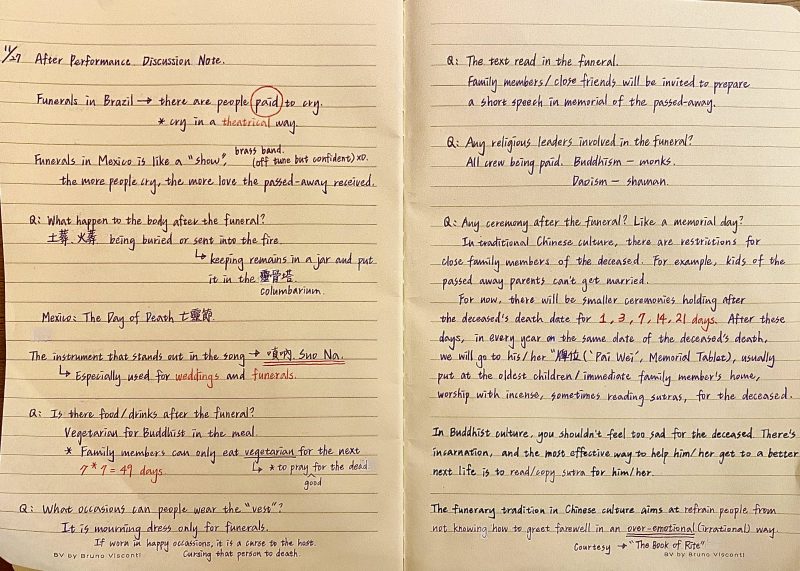 11/27 After Performance Discussion Note.
Funerals in Brazil → there are people paid to cry.
* cry in a theatrical way.
Funerals in Mexico is like a "show", brass band. (off tune but confident) XD.
the more people cry, the more love the passed-away received.
Q: What happen to the body after the funeral?
土葬、火葬 being buried or sent into the fire.
↳ keeping remains in a jar and put
it in the 靈骨塔.
columbarium.
Mexico: The Day of Death 亡靈節.
The instrument that stands out in the song → 嗩吶. Suo Na.
↳ Especially used for weddings and funerals.
Q: Is there food/drinks after the funeral?
Vegetarian for Buddhist in the meal.
* Family members can only eat vegetarian for the next
7*7=49 days. ↳ * to pray for the dead.
good
Q: What occasions can people wear the "vest"?
It is mourning dress only for funerals.
If worn in happy occassions, it is a curse to the host.
Cursing that person to death.
BV by Bruno Visconti
Q: The text read in the funeral.
Family members/close friends will be invited to prepare
a short speech in memorial of the passed-away.
Q: Any religious leaders involved in the funeral?
All crew being paid. Buddhism – monks.
Daoism – shaman.
Q: Any ceremony after the funeral? Like a memorial day?
In traditional Chinese culture, there are restrictions for
close family members of the deceased. For example, kids of the
passed away parents can't get married.
For now, there will be smaller ceremonies holding after
the deceased's death date for 1, 3, 7, 14, 21 days. After these
days, in every year on the same date of the deceased's death,
we will go to his/her "牌位 ('Pai Wei', Memorial Tablet), usually
put at the oldest children/immediate family member's home,
worship with incense, sometimes reading sutras, for the deceased.
In Buddhist culture, you shouldn't feel too sad for the deceased. There's
incarnation, and the most effective way to help him/her get to a better
next life is to read/copy sutra for him/her.
The funerary tradition in Chinese culture aims at refrain people from
not knowing how to greet farewell in an over-emotional (irrational) way.
Courtesy → "The Book of Rite"
BV by Bruno Visconti